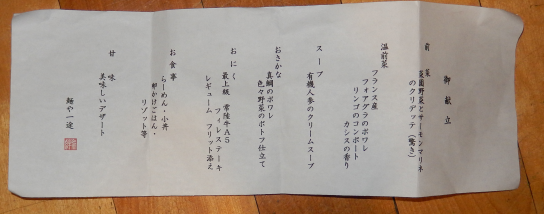 御献立
前菜
菜園野菜とサーモンマリネ
のクリデッテ(驚き)
温前菜
フランス産
フォアグラのポワレ
リンゴのコンポート
カシスの香り
スープ
有機人参のクリームスープ
おさかな
真鯛のポワレ
色々野菜のポトフ仕立て
おにく
最上級 常陸牛A5
フィレステーキ
レギューム フリット添え
お食事
らーめん・小丼
卵かけごはん・
リゾット等
甘味
美味しいデザート
麺や一途